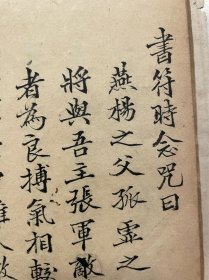 書符時念咒曰
燕楊之父孤虛之
將與吾主張軍敵
者為良搏氣相